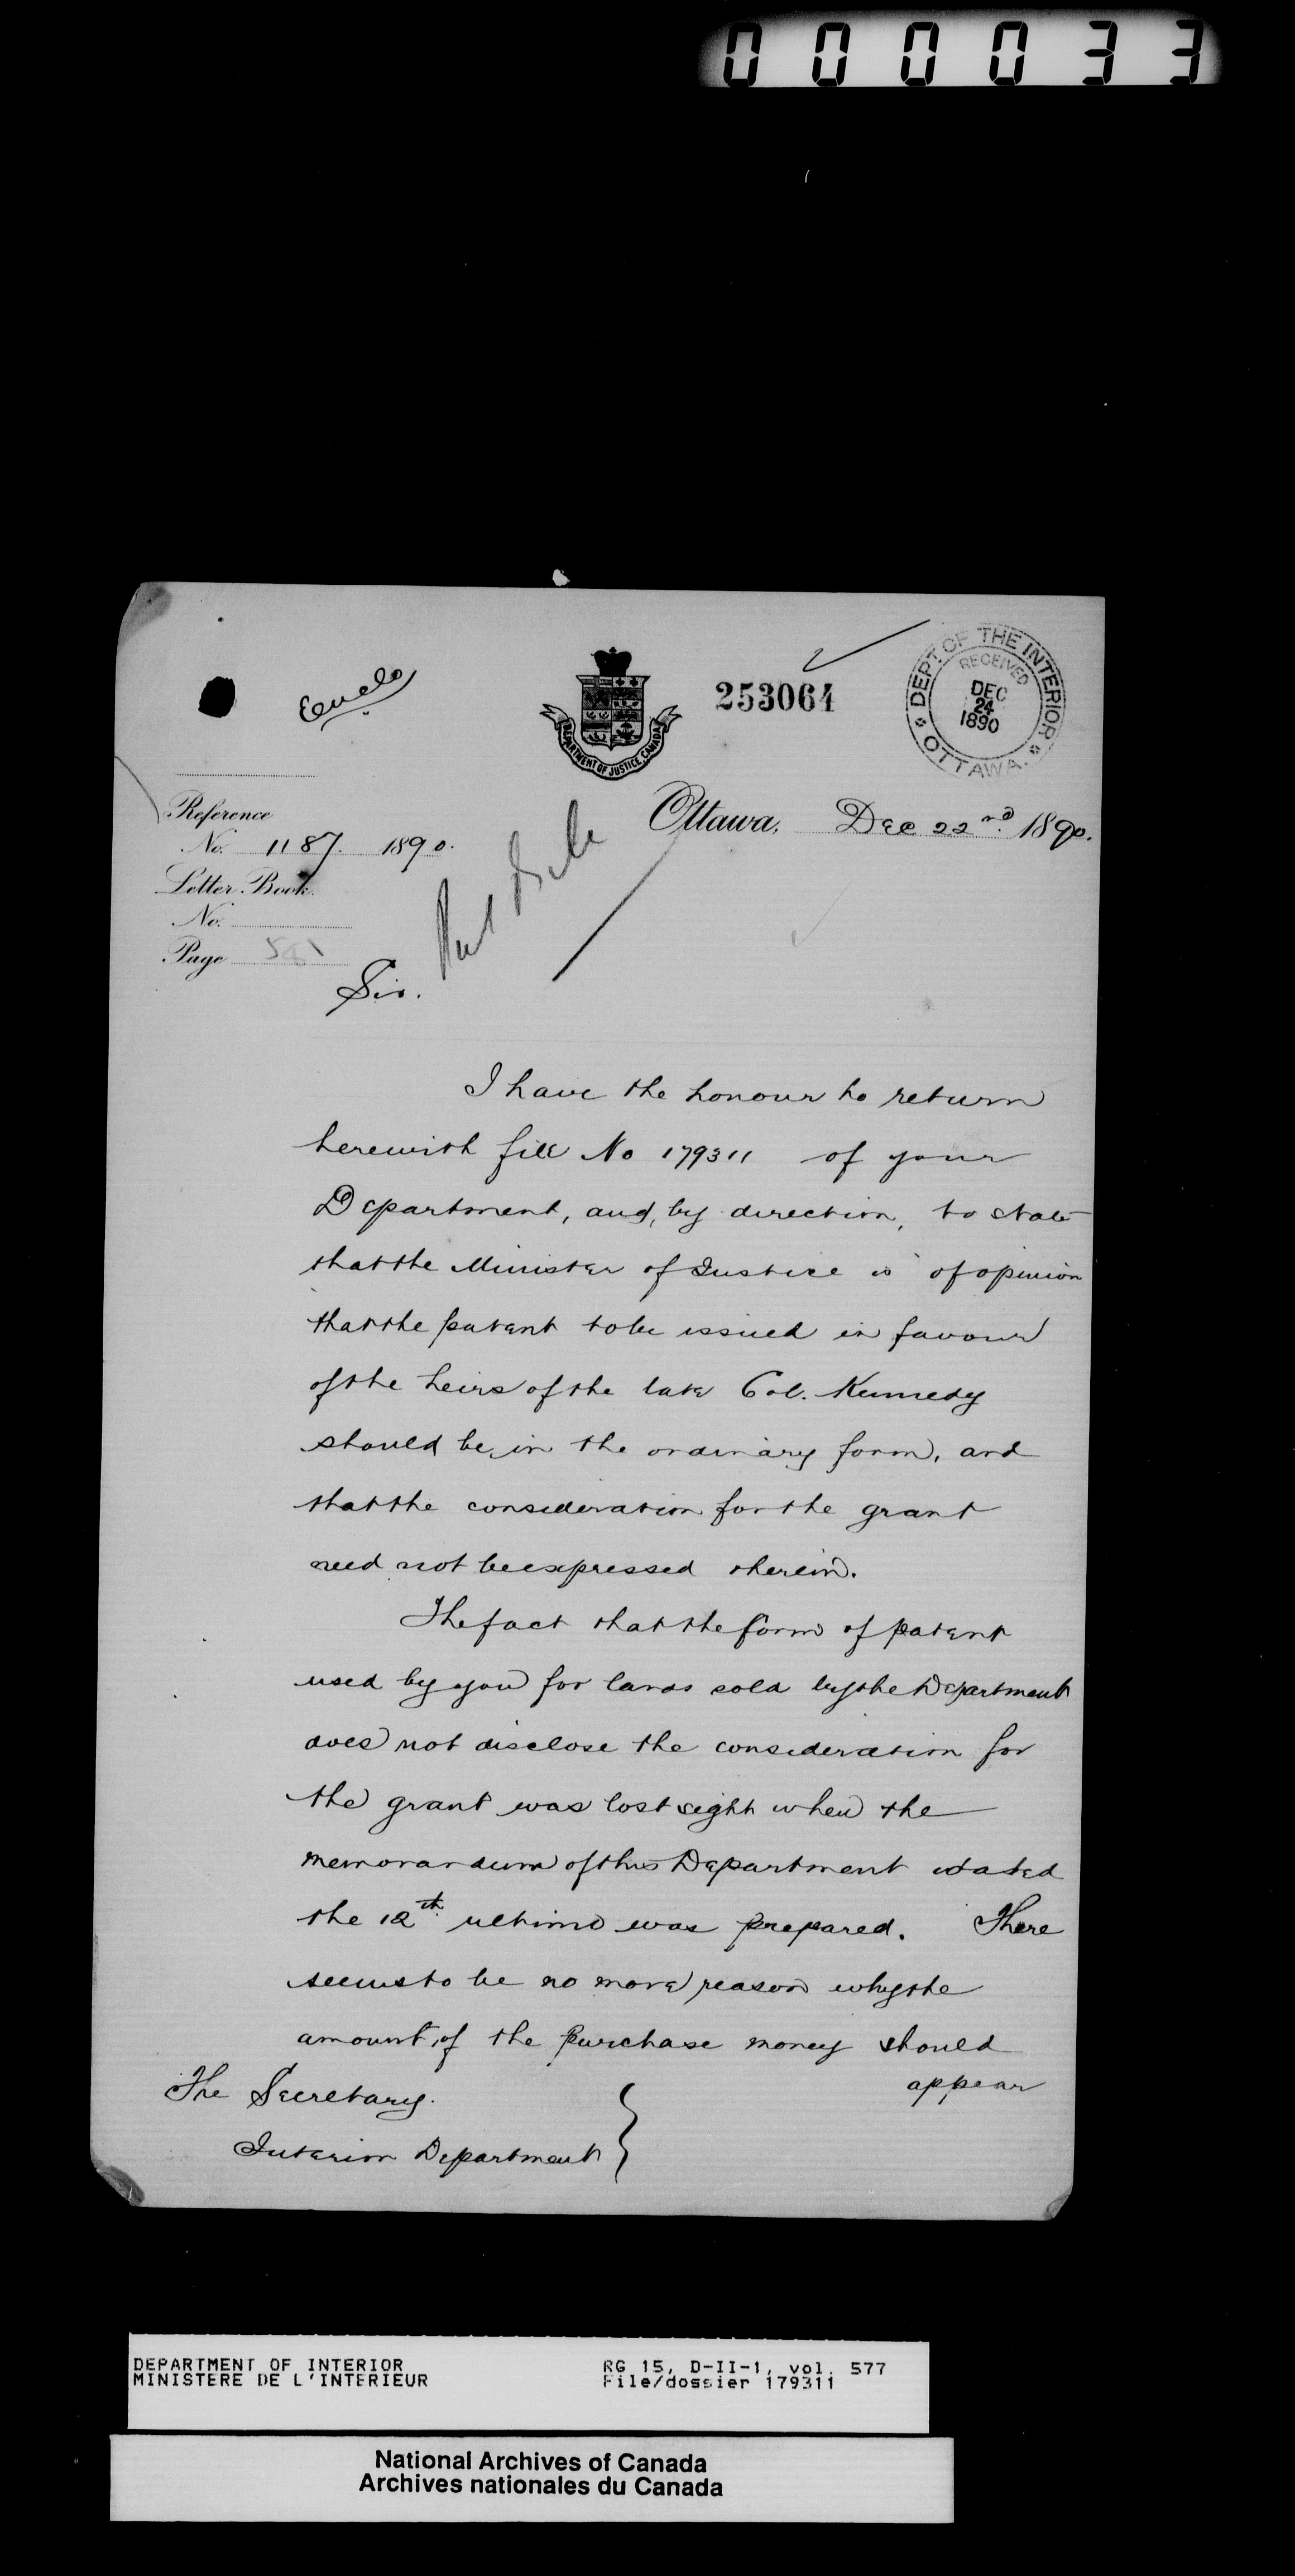 000033
DEPT. OF THE INTERIOR
RECEIVED
DEC
24
1890
OTTAWA.
253064
DEPARTMENT OF JUSTICE, CANADA
Ottawa, Dec 22nd 1890.
Reference
No. 1187. 1890.
Letter Book.
No.
Page 581
Sir.
I have the honour to return
herewith file No 179311 of your
Department, and, by direction, to state
that the Minister of Justice is of opinion
that the patent to be issued in favour
of the heirs of the late Col. Kennedy
should be, in the ordinary form, and
that the consideration for the grant
need not be expressed therein.
The fact that the form of patent
used by you for lands sold by the Department
does not disclose the consideration for
the grant was lost sight when the
memorandum of this Department dated
the 12th ultimo was prepared. There
seems to be no more reason why the
amount, of the purchase money should
appear
The Secretary.
Interior Department
DEPARTMENT OF INTERIOR
MINISTERE DE L'INTERIEUR
RG 15, D-II-1, vol. 577
File/dossier 179311
National Archives of Canada
Archives nationales du Canada